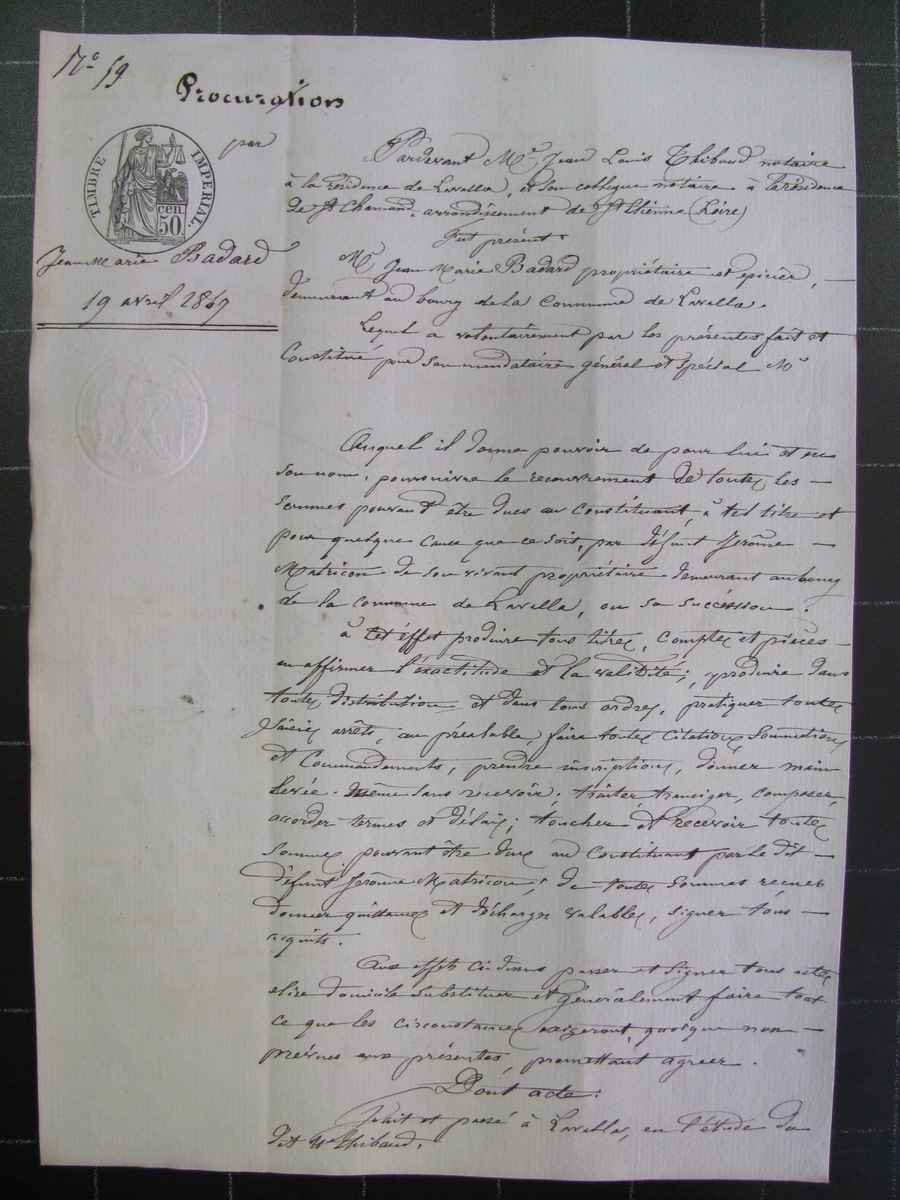 N° 59
Procuration
par
TIMBRE IMPERIAL.
50 cen.
Jean Marie Badard
19 avril 1867
Pardevant Me Jean Louis Thibaud notaire
à la résidence de Lavalla, et son collègue notaire à la résidence
de St Chamond, arrondissement de St Etienne (Loire)
Fut présent.
Mr Jean Marie Badard propriétaire et epicier, —
demeurant au bourg de la Commune de Lavalla.
Lequel a volontairement par les présentes fait et
Constitué pour son mandataire général et spécial Mr
Auquel il donne pouvoir de pour lui et en
son nom, poursuivre le recouvrement de toutes les —
sommes pouvant être dues au Constituant, à tel titre et
pour quelque cause que ce soit, par défunt Jerôme —
Matricon de son vivant propriétaire demeurant au bourg
de la commune de Lavalla, ou sa succéssion.
à Cet éffet produire tous titres, comptes et pièces —
en affirmer l'éxactitude et la validité; produire dans
toutes distribution et dans tous ordres, pratiquer toutes
saisies arrêts, au préalable, faire toutes citations, Sommations
et Commandements, prendre inscriptions, donner main
levée même sans recevoir; traiter, transiger, composer,
accorder termes et délais; toucher et recevoir toutes
sommes pouvant être dues au Constituant par le dit —
défunt Jerôme Matricon; de toutes sommes recues
donner quittances et décharges valables, signer tous —
acquits.
Aux effets ci dessus passer et signer tous actes
elire domicile substituer et généralement faire tout
ce que les circonstances exigeront, quoique non —
prévues aux présentes, promettant agréer.
Dont acte.
Fait et passé à Lavalla, en l'étude du
dit Me Thibaud.